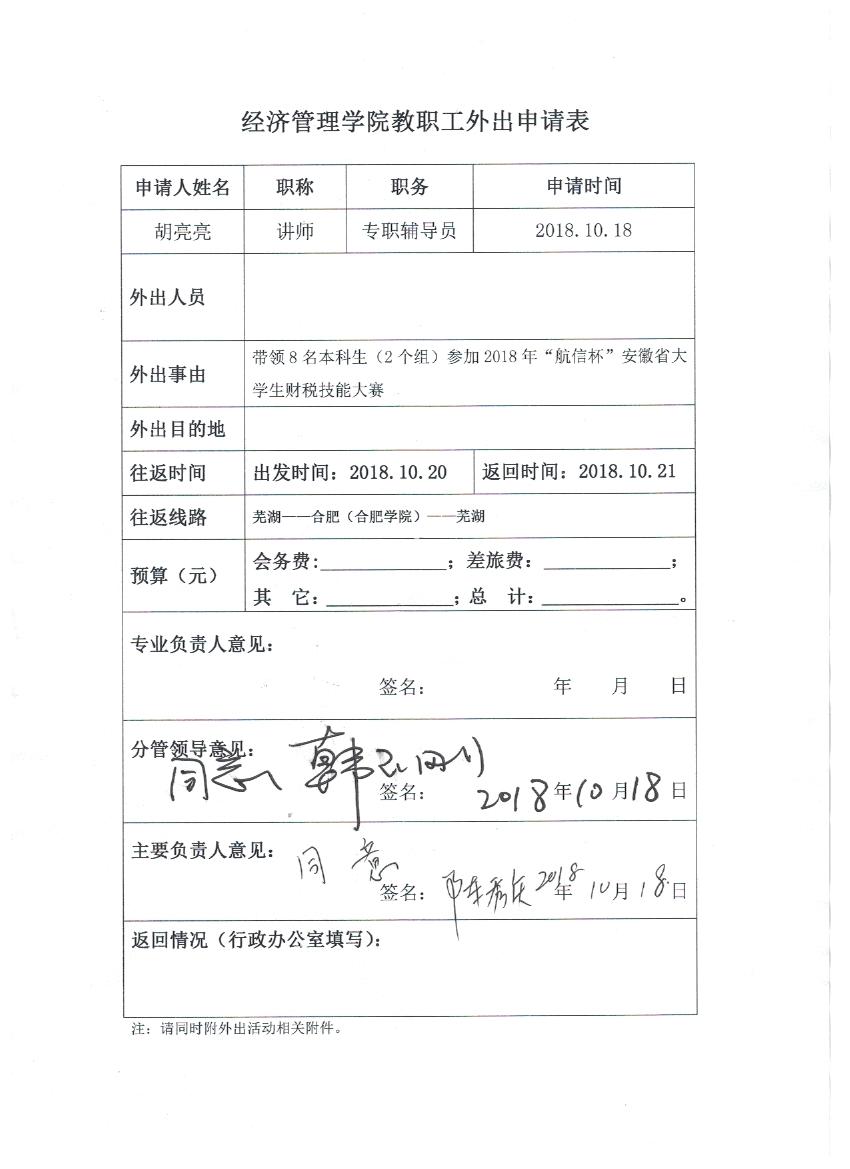 经济管理学院教职工外出申请表
申请人姓名 职称 职务 申请时间
胡亮亮 讲师 专职辅导员 2018.10.18
外出人员
外出事由 带领8名本科生（2个组）参加2018年“航信杯”安徽省大
学生财税技能大赛
外出目的地
往返时间 出发时间：2018.10.20 返回时间：2018.10.21
往返线路 芜湖——合肥（合肥学院）——芜湖
预算（元） 会务费:____________；差旅费：____________；
其 它：____________；总 计：____________。
专业负责人意见：
签名： 年 月 日
分管领导意见：
同意 韩
签名： 2018年10月18日
主要负责人意见： 同意
签名： 2018年10月18日
返回情况（行政办公室填写）：
注：请同时附外出活动相关附件。